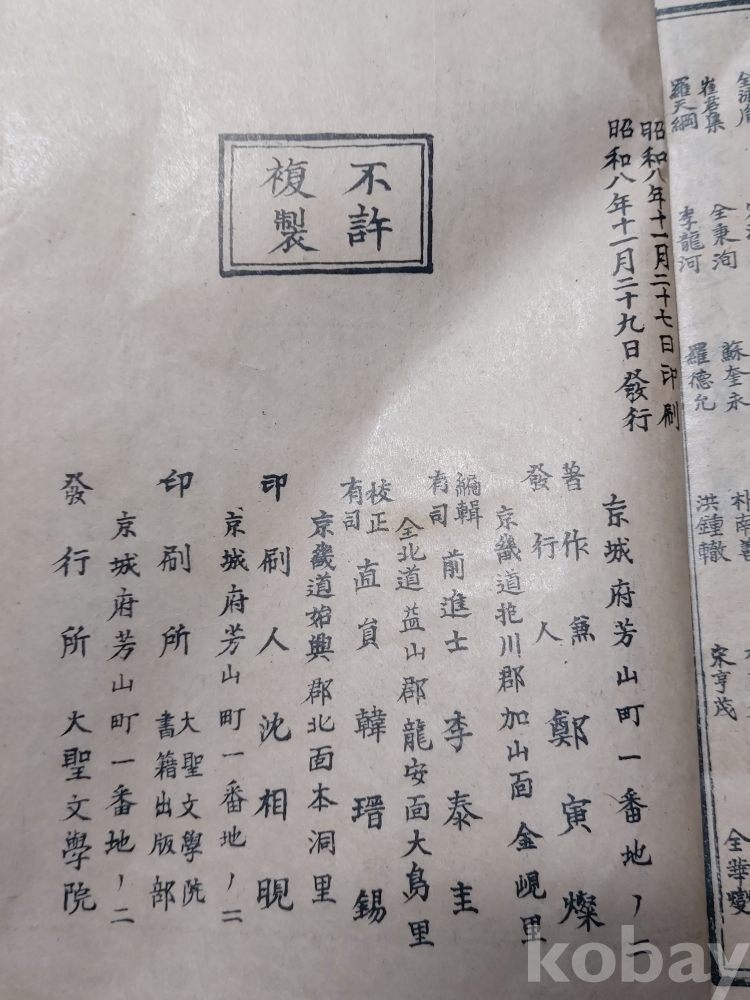 全華燮
朴南善
宋亨茂
崔君集
全秉洵
蘇奎永
洪鍾轍
羅天綱
李龍河
羅德允
昭和八年十一月二十七日印刷
昭和八年十一月二十九日發行
不許
複製
京城府芳山町一番地ノ二
著作兼發行人 鄭寅燦
京畿道抱川郡加山面金峴里
編輯有司 前進士 李泰圭
全北道益山郡龍安面大鳥里
校正有司 直員 韓瑨錫
京畿道始興郡北面本洞里
印刷人 沈相晛
京城府芳山町一番地ノ二
印刷所 大聖文學院書籍出版部
京城府芳山町一番地ノ二
發行所 大聖文學院
kobay